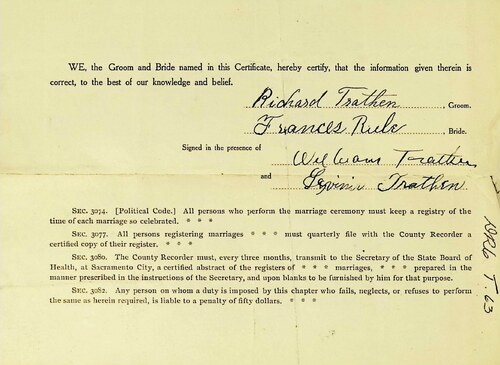 WE, the Groom and Bride named in this Certificate, hereby certify, that the information given therein is
correct, to the best of our knowledge and belief.
Richard Trathen, Groom.
Frances Rule, Bride.
Signed in the presence of
William Trathen
and Levinia Trathen
SEC. 3074. [Political Code.] All persons who perform the marriage ceremony must keep a registry of
the time of each marriage so celebrated. * * *
SEC. 3077. All persons registering marriages * * * must quarterly file with the County Recorder a
certified copy of their register. * * *
SEC. 3080. The County Recorder must, every three months, transmit to the Secretary of the State Board of
Health, at Sacramento City, a certified abstract of the registers of * * * marriages, * * * prepared in the
manner prescribed in the instructions of the Secretary, and upon blanks to be furnished by him for that purpose.
SEC. 3082. Any person on whom a duty is imposed by this chapter who fails, neglects, or refuses to perform
the same as herein required, is liable to a penalty of fifty dollars. * * *
1926 T. 63